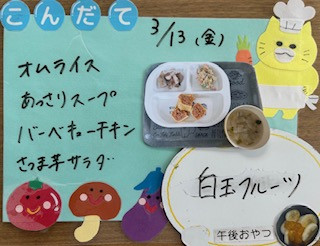 こんだて
3/13(金)
オムライス
あっさりスープ
バーベキューチキン
さつま芋サラダ
白玉フルーツ
午後おやつ